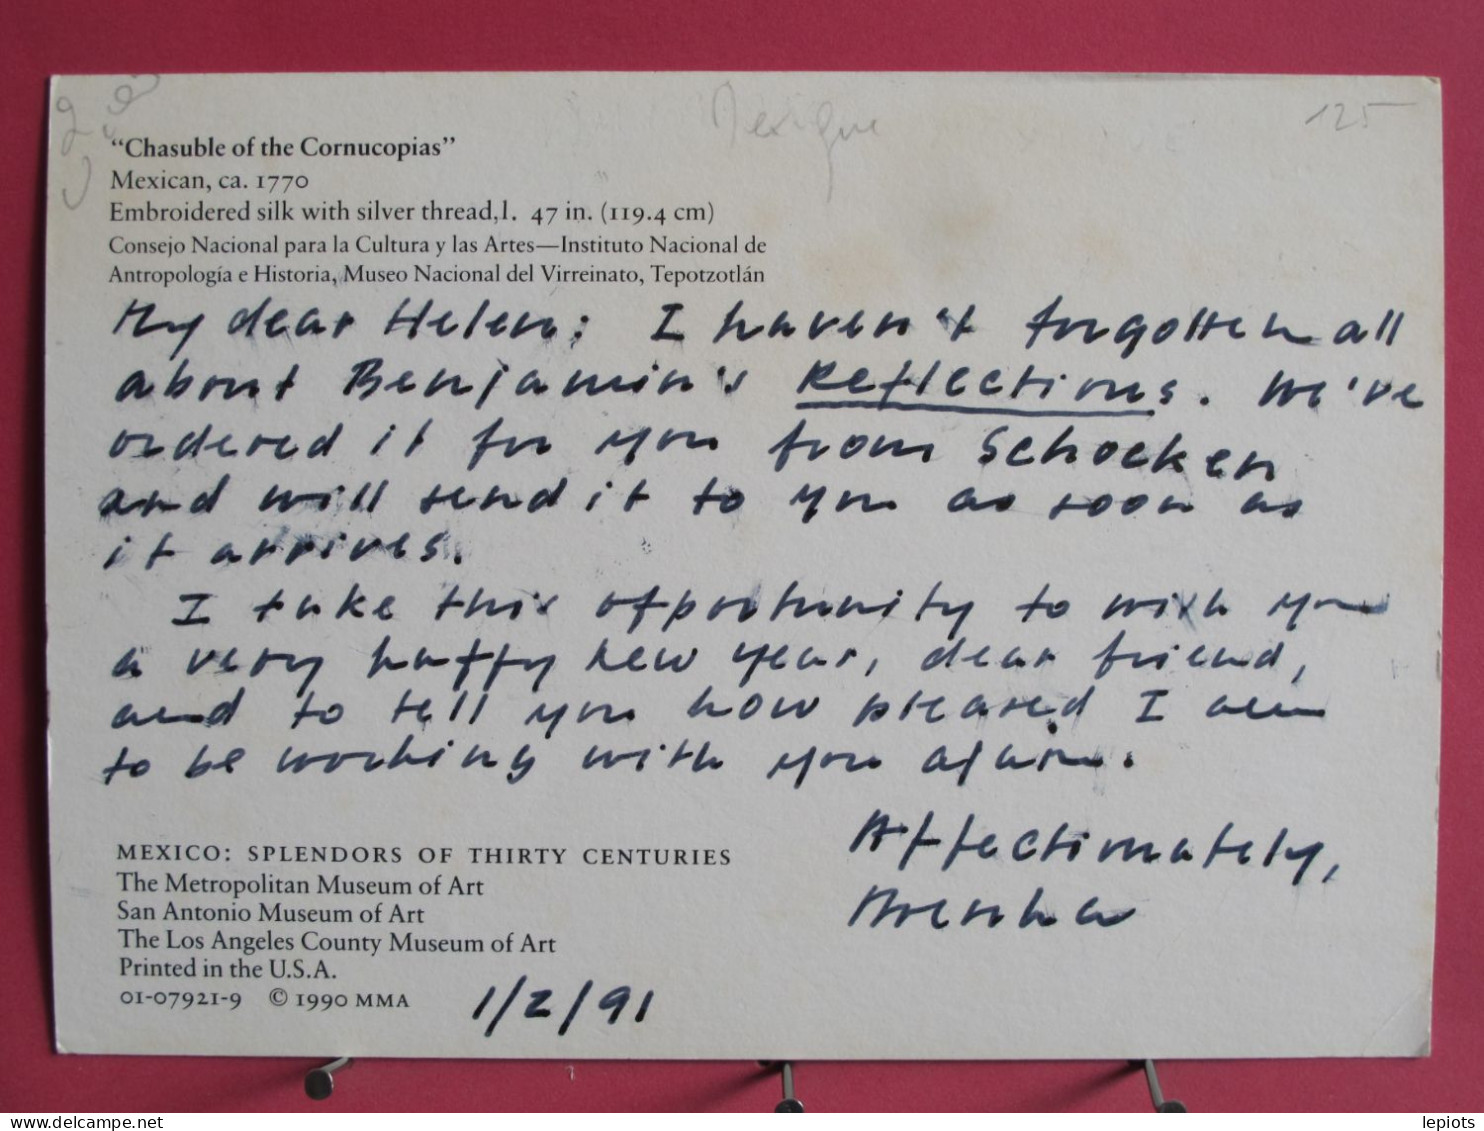 Mexique
125
"Chasuble of the Cornucopias"
Mexican, ca. 1770
Embroidered silk with silver thread,l. 47 in. (119.4 cm)
Consejo Nacional para la Cultura y las Artes—Instituto Nacional de
Antropología e Historia, Museo Nacional del Virreinato, Tepotzotlán
My dear Helen; I haven't forgotten all
about Benjamin's Reflections. We've
ordered it for you from Schocken
and will send it to you as soon as
it arrives.
I take this opportunity to wish you
a very happy new year, dear friend,
and to tell you how pleased I am
to be working with you again.
Affectionately,
MEXICO: SPLENDORS OF THIRTY CENTURIES
The Metropolitan Museum of Art
San Antonio Museum of Art
The Los Angeles County Museum of Art
Printed in the U.S.A.
01-07921-9 © 1990 MMA
1/2/91
delcampe.net
lepiots